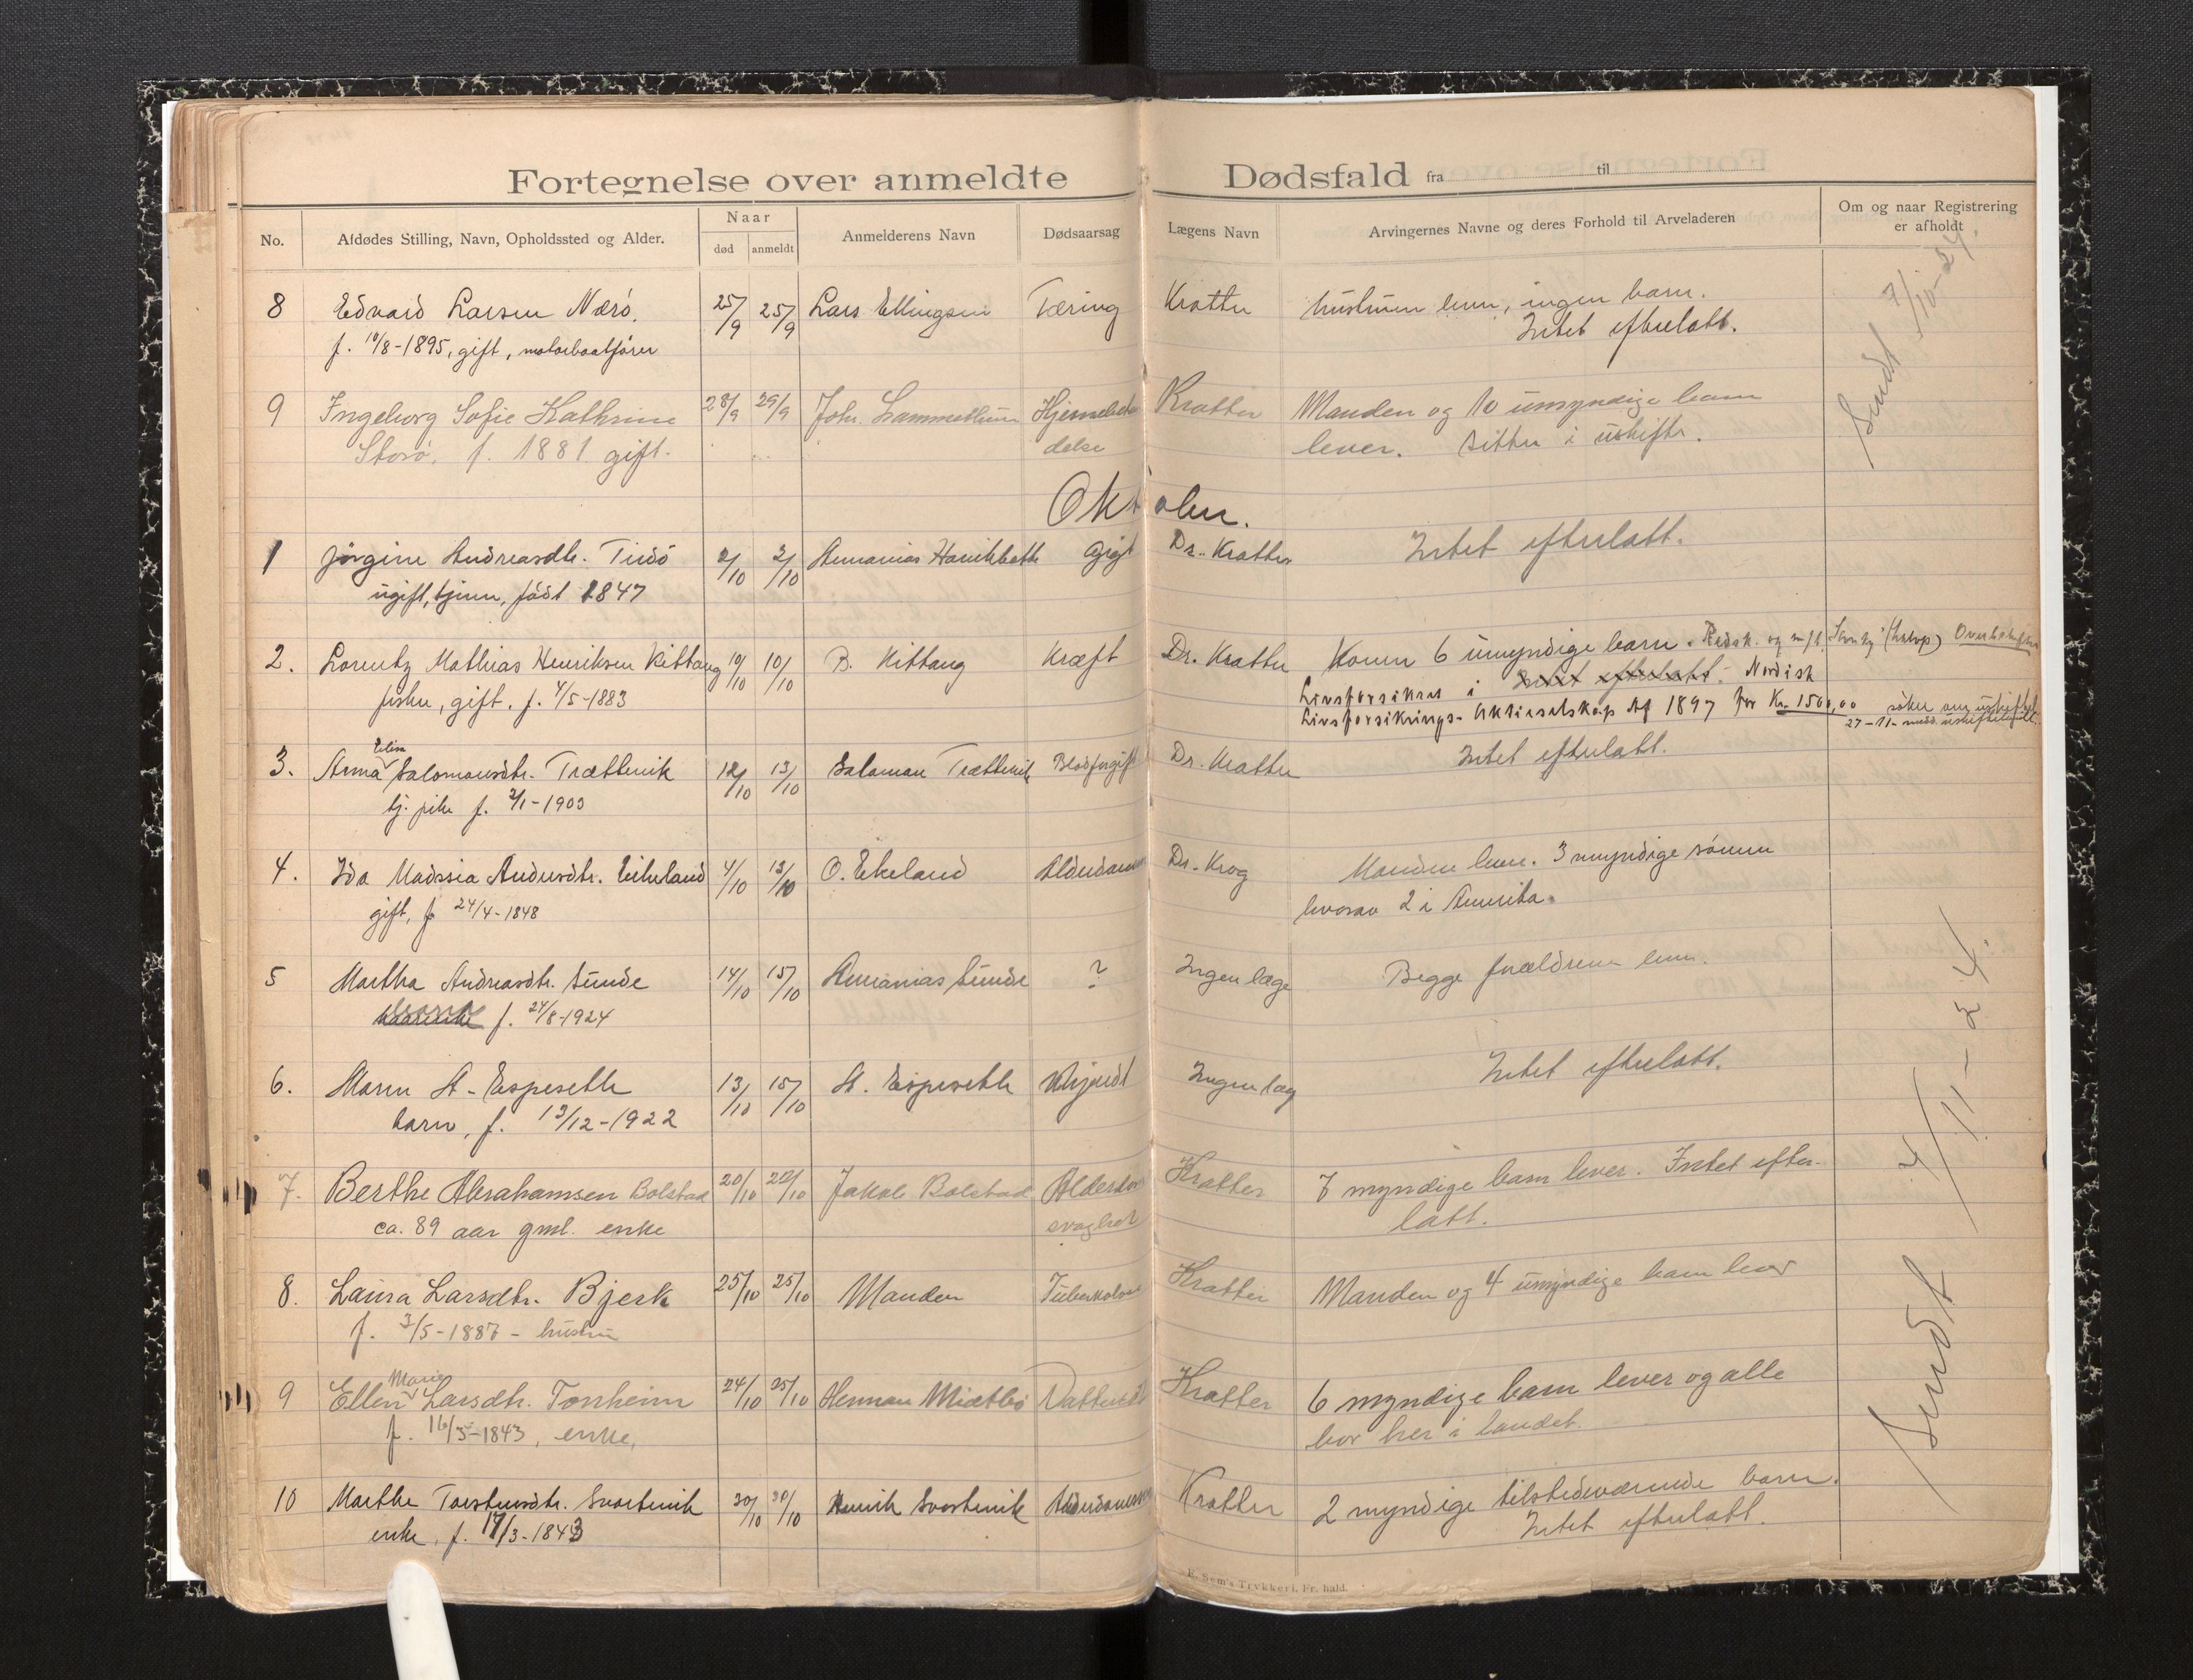 Fortegnelse over anmeldte Dødsfald fra til
No. Afdødes Stilling, Navn, Opholdssted og Alder. Naar død anmeldt Anmelderens Navn Dødsaarsag Lægens Navn Arvingernes Navne og deres Forhold til Arveladeren Om og naar Registrering er afholdt
8 Edvard Larsen Nærö. 25/9 25/9 Lars Ellingsen Tæring Kratter hustruen lever, ingen barn.
f. 10/8-1895, gift, motorbaatförer Intet efterlatt.
Sendt 7/10-24.
9 Ingeborg Sofie Kathrine 28/9 29/9 Joh. Kratter Manden og 10 umyndige barn
Storö, f. 1881 gift. delse lever. sitter i uskifte.
Oktober.
1 Jörgine Andreasdtr. 2/10 2/10 Gigt Dr. Kratter Intet efterlatt.
ugift, tjener, födt 1847
2. Lorentz Mathias Henriksen Kittang 10/10 10/10 B. Kittang Kræft Dr. Kratter Konen 6 umyndige barn.
fisker, gift, f. 4/5-1883 Livsforsikret i Intet efterlatt. Nordisk
Livsforsikrings-Aktieselskap Af 1897 for Kr. 1500,00 söker om uskiftet
27-11-
3. Anna Elise Salomonsdtr. Trættevik 12/10 13/10 Salomon Trættevik Blodforgift Dr. Kratter Intet efterlatt.
tj. pike f. 2/1-1903
4. Ida Madssia Andersdtr. Eikeland 4/10 13/10 O. Ekeland Dr. Krog Manden lever. 3 myndige sönner
gift, f 24/4-1848 hvorav 2 i Amerika.
5 Martha Andreasdtr. Sunde 14/10 15/10 Ananias Sunde ? Ingen læge Begge forældrene lever.
f. 24/8-1924
6. Maren A. Espeseth 13/10 15/10 A. Espeseth Ukjendt Ingen læg Intet efterlatt.
barn, f. 13/12-1922
7. Berthe Abrahamsen Bolstad 20/10 20/10 Jakob Bolstad Alderdoms Kratter 7 myndige barn lever. Intet efter-
ca. 89 aar gml. enke svaghet latt.
8. Laura Larsdtr. Bjerk 25/10 25/10 Manden Tuberkolose Kratter Manden og 4 umyndige barn lever
f. 3/5-1887 - hustru
9 Ellen Marie Larsdtr. Tonheim 24/10 25/10 Herman Midtbö Kratter 6 myndige barn lever og alle
f. 16/5-1843, enke, bor her i landet.
10 Marthe Torstensdtr. Svartevik 30/10 30/10 Henrik Svartevik Kratter 2 myndige tilstedeværende barn.
enke, f. 17/3-1843 Intet efterlatt.
Sendt 4/11-24.
E. Sem's Trykkeri, Fr. hald.